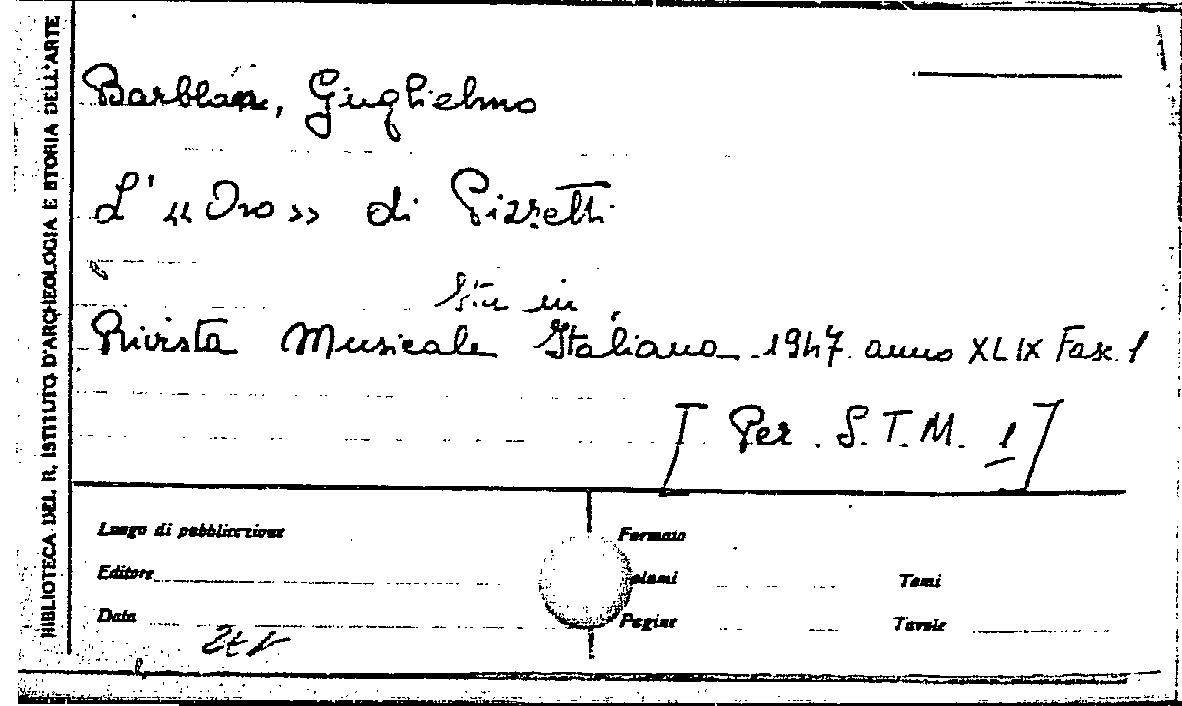 BIBLIOTECA DEL R. ISTITUTO D'ARCHEOLOGIA E STORIA DELL'ARTE
Barblan, Guglielmo
L' «Oro» di Pizzetti
Sta in
Rivista Musicale Italiana 1947 anno XLIX Fasc. 1
[Per. S.T.M. 1]
Luogo di pubblicazione
Formato
Editore
Volumi
Tomi
Data
Pagine
Tavole